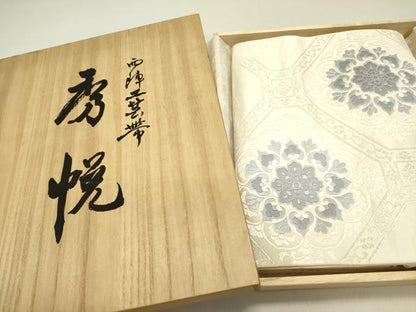 西陣工芸帯
秀悦